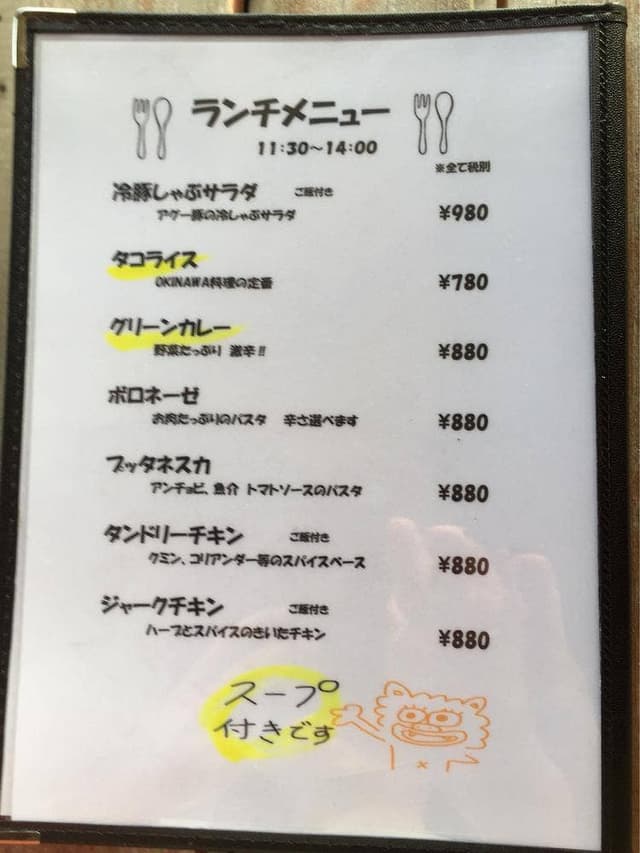 ランチメニュー
11:30～14:00
※全て税別
冷豚しゃぶサラダ ご飯付き
アグー豚の冷しゃぶサラダ ¥980
タコライス
OKINAWA料理の定番 ¥780
グリーンカレー
野菜たっぷり 激辛!! ¥880
ボロネーゼ
お肉たっぷりのパスタ 辛さ選べます ¥880
プッタネスカ
アンチョビ、魚介 トマトソースのパスタ ¥880
タンドリーチキン ご飯付き
クミン、コリアンダー等のスパイスベース ¥880
ジャークチキン ご飯付き
ハーブとスパイスのきいたチキン ¥880
スープ
付きです